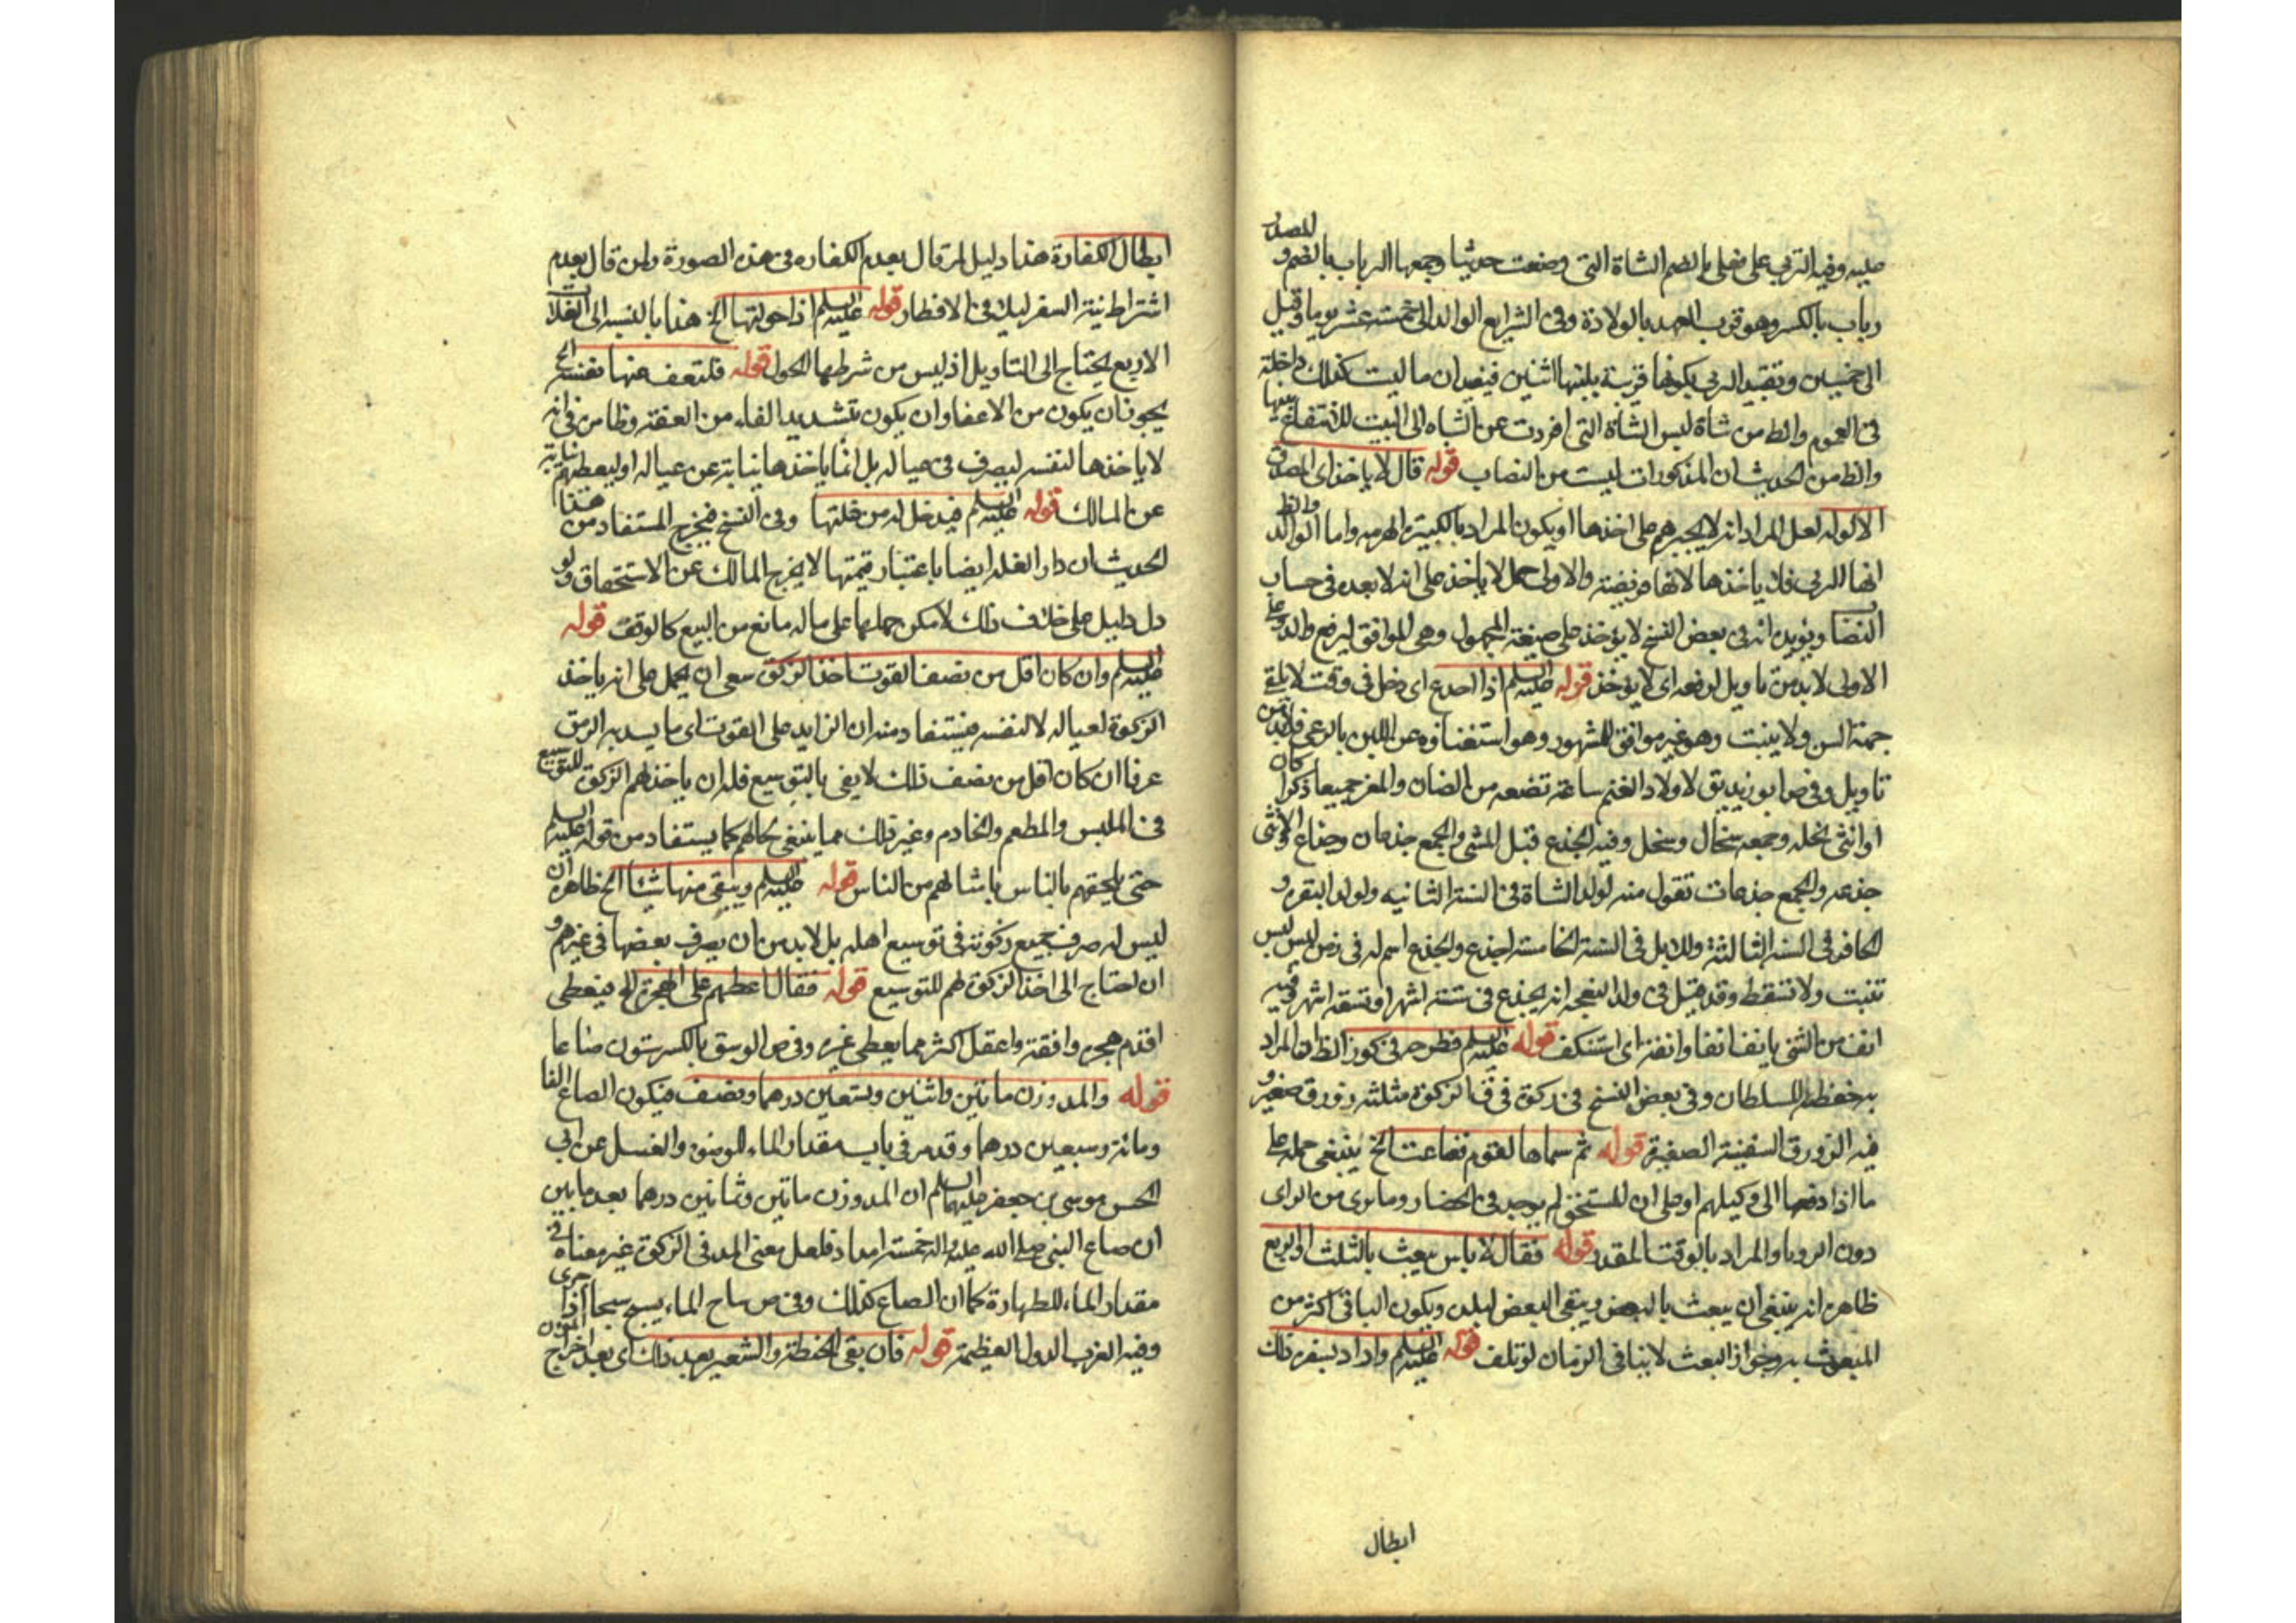 للمصدق
عليه وفيه الربى على فعلى بالضم الشاة التى وضعت حديثا وجمعها الرباب بالضم و
رباب بالكسر وهو قرب العهد بالولادة وفى الشرايع الوالد الى خمسة عشر يوما وقيل
الى خمسين وتقييد الربى بكونها قريبة بلبنها اثنين فيفيد ان ما ليست كذلك داخلة
فى العموم والظ من شاة لبس الشاة التى افردت عن الشاه الى البيت للانتفاع بلبنها
والظ من الحديث ان المذكورات ليست من النصاب قوله قال لا ياخذ اى المصدق
الاكولة لعل المراد انه لا يجبرهم على اخذها او يكون المراد بالكبيرة الهرمه واما الوالد والظ
انها الربى فلا ياخذها لانها مريضة والاولى حمل لا ياخذ على انه لا بعده فى حساب
النصاب ويؤيده انه فى بعض النسخ لا يؤخذ على صيغة المجهول وهى للموافق ليرفع والد وعلى
الاولى لا بد من تاويل لرفعه اى لا يؤخذ قوله عليه السلم اذا اجدع اى دخل فى وقت لا يلقى
جهة السن ولا ينبت وهو غير موافق للمشهور وهو استغناؤه عن اللبن بالرعى فلا بد من
تاويل وفى ص ابو زيد يق لاولاد الغنم ساعة تضعه من الضان والمعز جميعا ذكرا كان
او انثى سخله وجمعه سخال وسخل وفيه الجذع قبل الثنى والجمع جذعان وجذاع والانثى
جذعه والجمع جذعات تقول منه لولد الشاة فى السنة الثانيه ولولد البقر و
الحافر فى السنة الثالثة وللابل فى السنة الخامسة اجذع والجذع اسم له فى زمن ليس بسن
تنبت ولا تسقط وقد قيل فى ولد النعجه انه يجذع فى ستة اشهر او تسعة اشهر وفيه
انف من الشئ يانف انفا وانفة اى استنكف قوله عليه السلم فطرحه فى كوز الظ ان المراد
به حفظه للسلطان وفى بعض النسخ فى ركوة فى ق الركوة مثلثه زورق صغير و
فيه الزورق السفينة الصغيرة قوله ثم سماها لقوم فضاعت الخ ينبغى حمله على
ما اذا دفعها الى وكيلهم او على ان المستحق لم يوجد فى الحضار وما يرى من الراى
دون الرويا والمراد بالوقت المقدر قوله فقال لا باس يبعث بالثلث او الربع
ظاهره انه ينبغى ان يبعث بالبعض ويبقى البعض لبلده ويكون الباقى اكثر من
المبعوث به وجواز البعث لا ينافى الزمان لو تلف قوله عليه السلم واراد بسفره ذلك
ابطال
ابطال الكفارة هذا دليل لمن قال بعدم الكفاره فى هذه الصورة ولمن قال بعدم
اشتراط نية السفر ليلا فى الافطار قوله عليه السلم اذا حولتها الخ هذا بالنسبة الى الغلات
الاربع يحتاج الى التاويل اذ ليس من شرطها الحول قوله فلتعف عنها نفسه الخ
يجوز ان يكون من الاعفا وان يكون بتشديد الفاء من العفة وظاهره فى انه
لا ياخذها لنفسه ليصرف فى عياله بل انما ياخذها نيابة عن عياله او ليعطيهم نيابة
عن المالك قوله عليه السلم فيدخل له من غلتها وفى النسخ فيخرج المستفاد من هذا
الحديث ان دار الغله ايضا باعتبار قيمتها لا يخرج المالك عن الاستحقاق ولو
دل دليل على خلاف ذلك لامكن حملها على ما له مانع من البيع كالوقف قوله
عليه السلم وان كان اقل من نصف القوت اخذ الزكوة سعى ان يحمل على انه ياخذ
الزكوة لعياله لا لنفسه فيستفاد منه ان الزايد على القوت اى ما يسد به الرمق
عرفا ان كان اقل من نصف ذلك لا يفى بالتوسيع فله ان ياخذ لهم الزكوة للتوسيع
فى الملبس والمطعم والخادم وغير ذلك مما ينبغى بحالهم كما يستفاد من قوله عليه السلم
حتى يلحقهم بالناس باشالهم من الناس قوله عليه السلم ويبقى منها شيئا الخ ظاهره ان
ليس له صرف جميع زكوته فى توسيع اهله بل لا بد من ان يصرف بعضها فى غيرهم و
ان احتاج الى اخذ الزكوة لهم للتوسيع قوله فقال اعطهم على الهجرة الخ فيعطى
اقدم هجره وافقه واعقل اكثر مما يعطى غيره وفى ص الوسق بالكسر ستون صاعا
قوله والمد وزن مائتين واثنين وتسعين درهما ونصف فيكون الصاع الفا
ومائة وسبعين درهما وقد مر فى باب مقدار الماء للوضوء والغسل عن ابى
الحسن موسى بن جعفر عليهما السلم ان المد وزن مائتين وثمانين درهما بعد ما بين
ان صاع النبى صلى الله عليه واله خمسة امداد فلعل معنى المد فى الزكوة غير معناه فى
مقدار الماء للطهارة كما ان الصاع كذلك وفى ص ساح الماء يسيح سيحا اذا جرى
وفيه الغرب الدلو العظيمة قوله فان بقى الحنطة والشعير بعد ذلك اى بعد اخراج المؤن